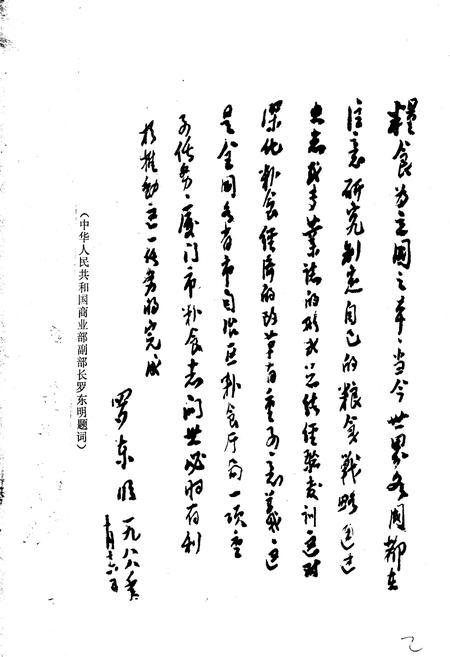 粮食为立国之本，当今世界各国都在
注意研究制定自己的粮食战略通过
史志或专业志的形式总结经验教训这对
深化粮食经济的改革有重要意义这
是全国各省市自治区粮食厅局一项重
要任务，厦门市粮食志问世必将有利
于推动这一任务的完成
罗东明 一九八八年
十月十六日
（中华人民共和国商业部副部长罗东明题词）